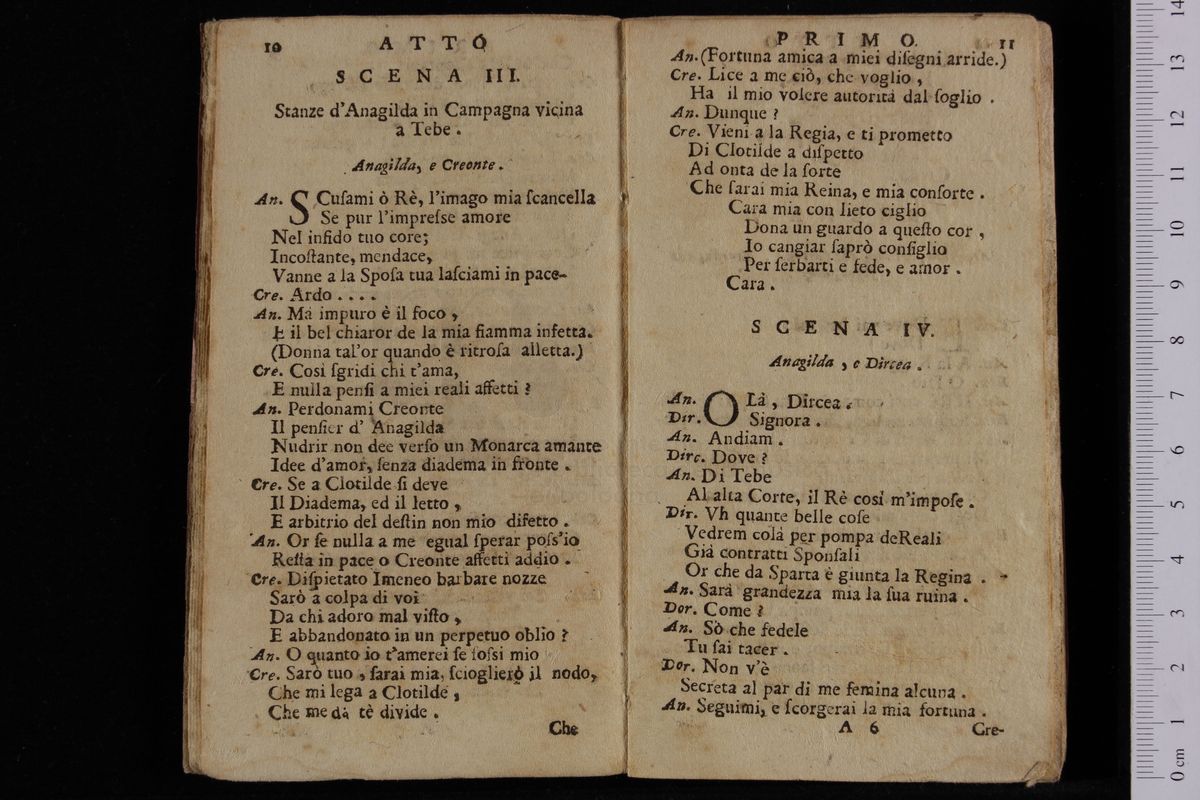 10 ATTO
SCENA III.
Stanze d'Anagilda in Campagna vicina
a Tebe.
Anagilda, e Creonte.
An. SCusami ò Rè, l'imago mia scancella
Se pur l'impresse amore
Nel infido tuo core;
Incostante, mendace,
Vanne a la Sposa tua lasciami in pace-
Cre. Ardo....
An. Ma impuro è il foco,
E il bel chiaror de la mia fiamma infetta.
(Donna tal'or quando è ritrosa alletta.)
Cre. Cosi sgridi chi t'ama,
E nulla pensi a miei reali affetti?
An. Perdonami Creonte
Il pensier d' Anagilda
Nudrir non dee verso un Monarca amante
Idee d'amor, senza diadema in fronte.
Cre. Se a Clotilde si deve
Il Diadema, ed il letto,
E arbitrio del destin non mio difetto.
An. Or se nulla a me egual sperar poss'io
Resta in pace o Creonte affetti addio.
Cre. Dispietato Imeneo barbare nozze
Sarò a colpa di voi
Da chi adoro mal visto,
E abbandonato in un perpetuo oblio?
An. O quanto io t'amerei se fossi mio
Cre. Sarò tuo, sarai mia, scioglierò il nodo,
Che mi lega a Clotilde,
Che me da tè divide.
Che
PRIMO. 11
An. (Fortuna amica a miei disegni arride.)
Cre. Lice a me ciò, che voglio,
Ha il mio volere autorità dal soglio.
An. Dunque?
Cre. Vieni a la Regia, e ti prometto
Di Clotilde a dispetto
Ad onta de la sorte
Che sarai mia Reina, e mia consorte.
Cara mia con lieto ciglio
Dona un guardo a questo cor,
Io cangiar saprò consiglio
Per serbarti e fede, e amor.
Cara.
SCENA IV.
Anagilda, e Dircea.
An. OLà, Dircea.
Dir. Signora.
An. Andiam.
Dirc. Dove?
An. Di Tebe
Al alta Corte, il Rè cosi m'impose.
Dir. Vh quante belle cose
Vedrem colà per pompa deReali
Già contratti Sponsali
Or che da Sparta è giunta la Regina.
An. Sarà grandezza mia la sua ruina.
Dor. Come?
An. Sò che fedele
Tu sai tacer.
Dor. Non v'è
Secreta al par di me femina alcuna.
An. Seguimi, e scorgerai la mia fortuna.
A 6 Cre-
14
13
12
11
10
9
8
7
6
5
4
3
2
1
0 cm